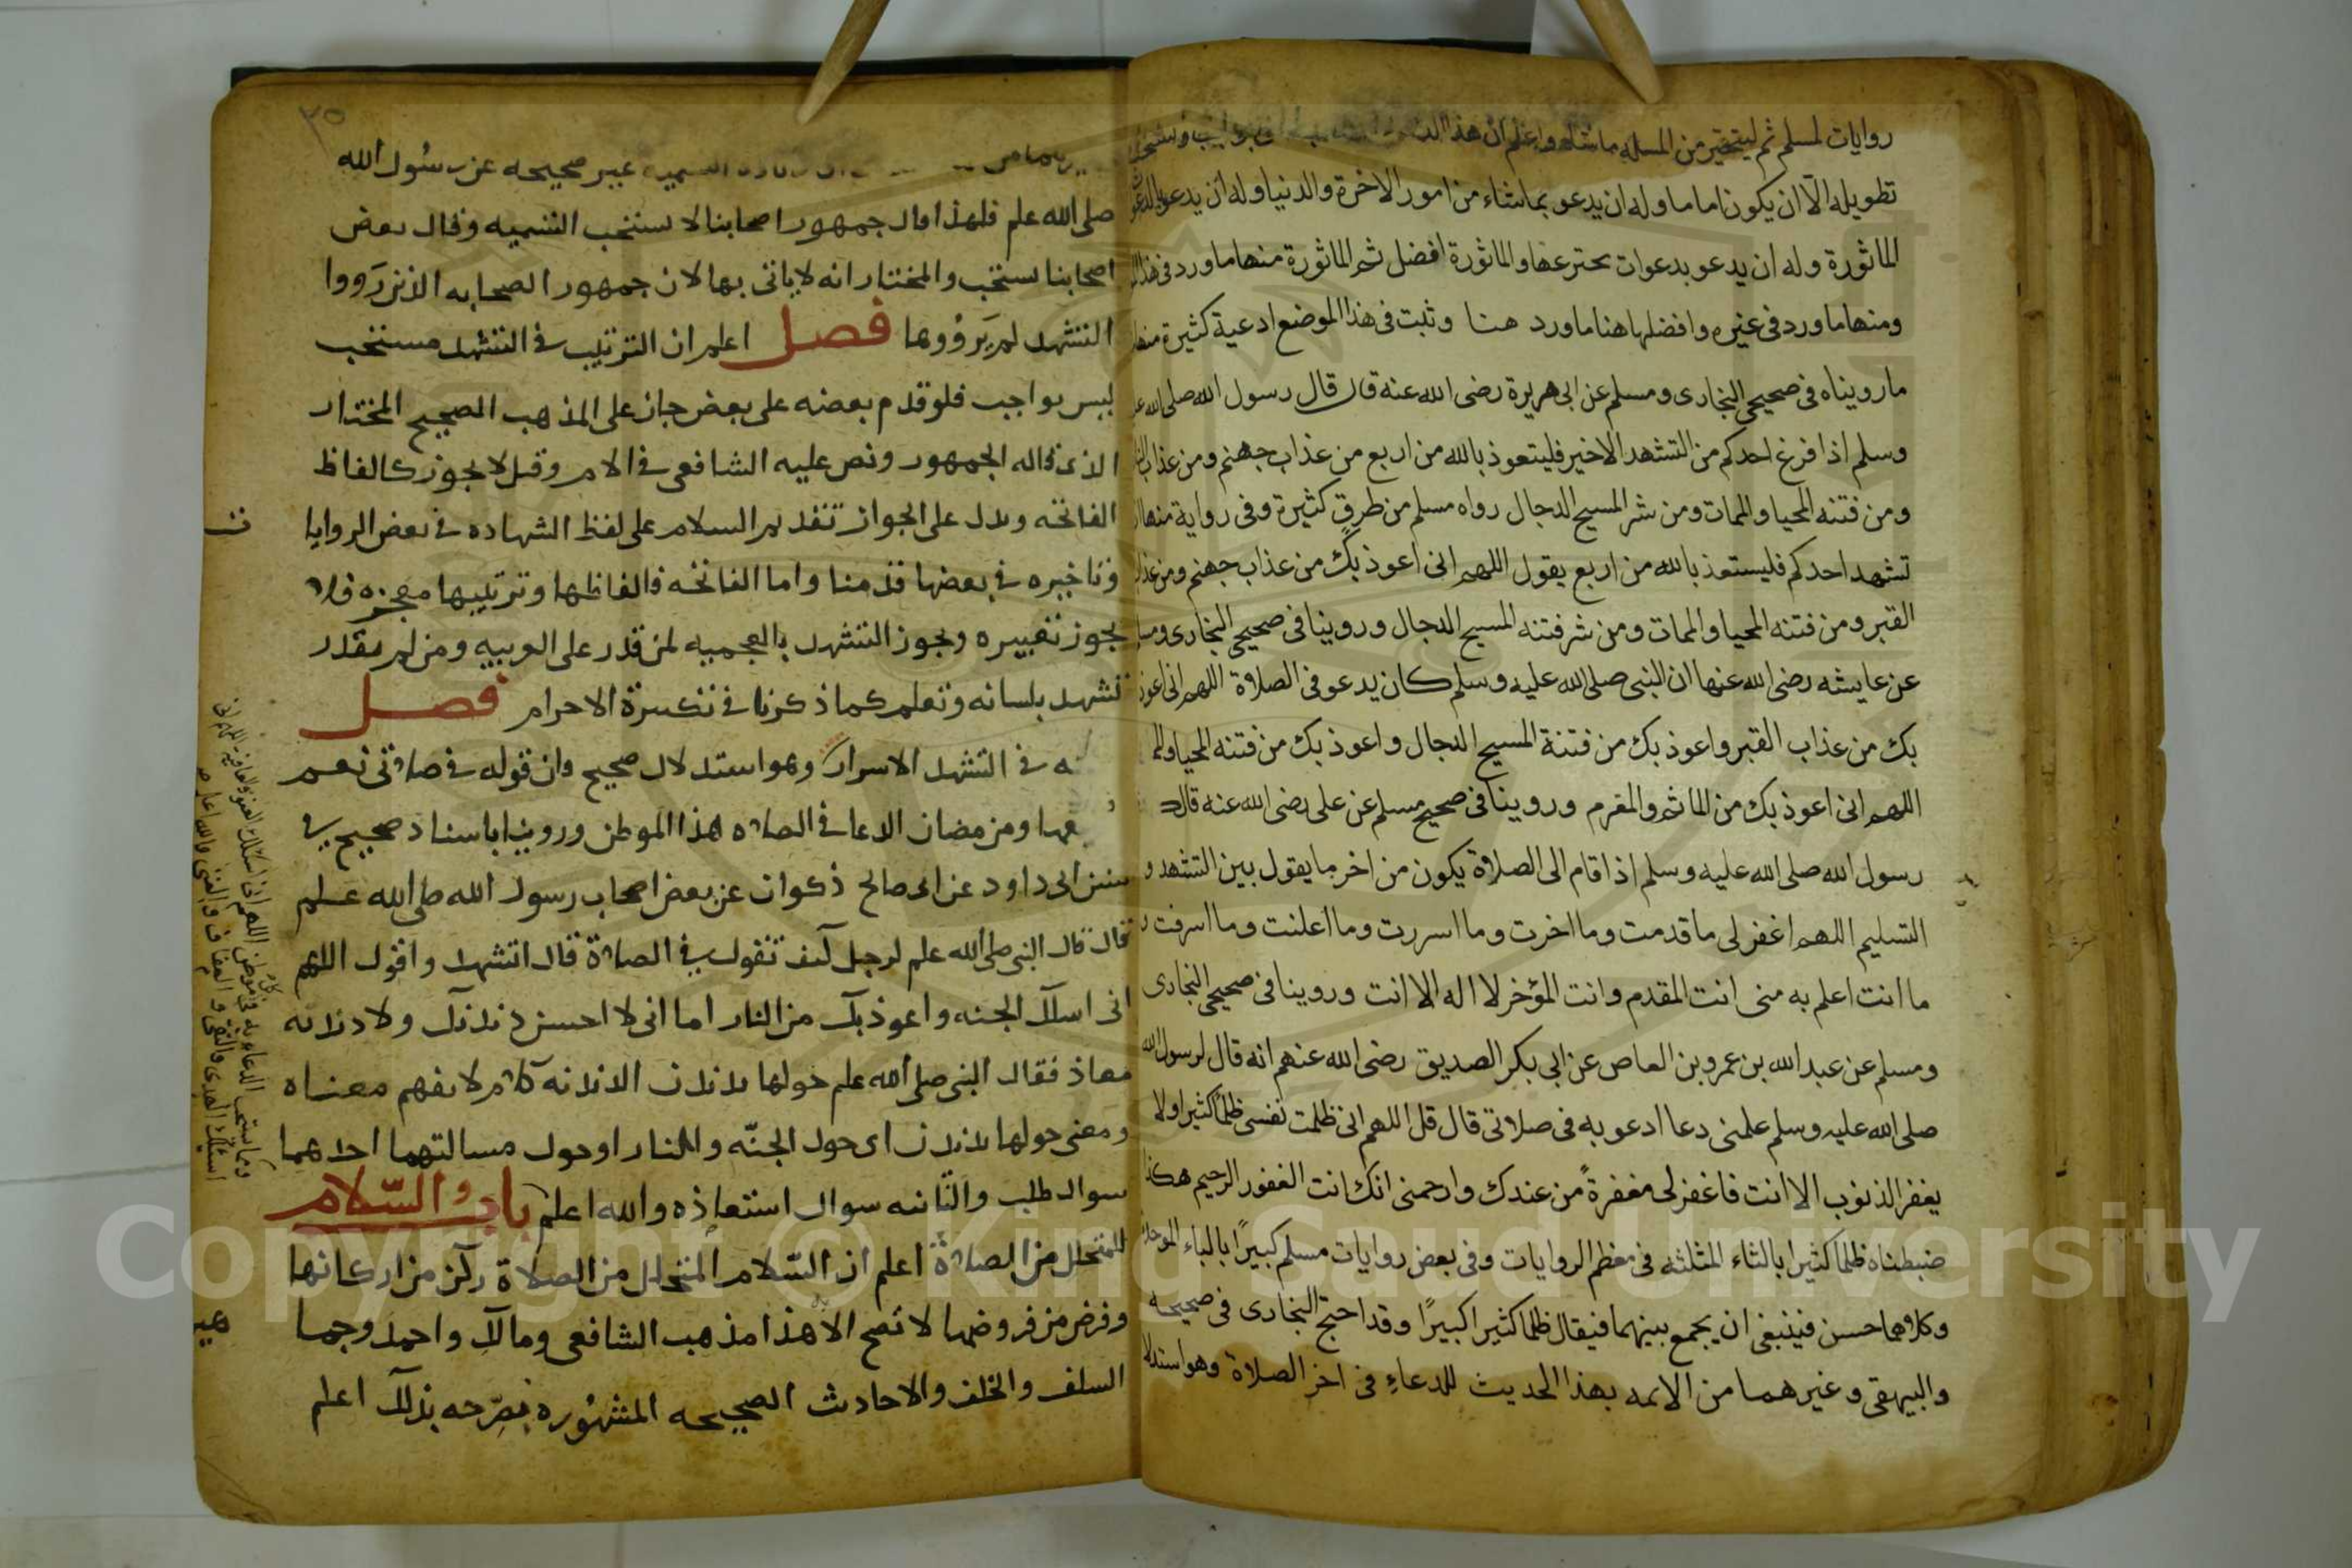 روايات لمسلم ثم ليتخير من المسله ما شاء واعلم ان هذا
تطويله الا ان يكون اماما وله ان يدعو بما شاء من امور الاخرة والدنيا وله ان يدعو
الماثورة وله ان يدعو بدعوات يخترعها والماثورة افضل ثم الماثورة منها ما ورد في هذا
ومنها ما ورد في غيره وافضلها هنا ما ورد هنا وثبت في هذا الموضع ادعية كثيرة منها
ما رويناه في صحيحي البخارى ومسلم عن ابى هريرة رضى الله عنه قال قال رسول الله صلى الله
وسلم اذا فرغ احدكم من التشهد الاخير فليتعوذ بالله من اربع من عذاب جهنم ومن عذاب
ومن فتنه المحيا والممات ومن شر المسيح الدجال رواه مسلم من طرق كثيرة وفى رواية منها
تشهد احدكم فليستعذ بالله من اربع يقول اللهم انى اعوذ بك من عذاب جهنم ومن عذاب
القبر ومن فتنه المحيا والممات ومن شر فتنه المسيح الدجال وروينا فى صحيحى البخارى
عن عايشه رضى الله عنها ان النبى صلى الله عليه وسلم كان يدعو فى الصلاة اللهم انى اعوذ
بك من عذاب القبر واعوذ بك من فتنة المسيح الدجال واعوذ بك من فتنه المحيا
اللهم انى اعوذ بك من الماثم والمغرم وروينا فى صحيح مسلم عن على رضى الله عنه قال
رسول الله صلى الله عليه وسلم اذا قام الى الصلاة يكون من اخر ما يقول بين التشهد و
التسليم اللهم اغفر لى ما قدمت وما اخرت وما اسررت وما اعلنت وما اسرفت
ما انت اعلم به منى انت المقدم وانت المؤخر لا اله الا انت وروينا فى صحيحى البخارى
ومسلم عن عبد الله بن عمرو بن العاص عن ابى بكر الصديق رضى الله عنهم انه قال لرسول الله
صلى الله عليه وسلم علمنى دعا ادعو به فى صلاتى قال قل اللهم انى ظلمت نفسى ظلما كثيرا ولا
يغفر الذنوب الا انت فاغفر لى مغفرة من عندك وارحمنى انك انت الغفور الرحيم هكذا
ضبطناه ظلما كثيرا بالثاء المثلثه فى معظم الروايات وفى بعض روايات مسلم كبيرا بالباء
وكلاهما حسن فينبغى ان يجمع بينهما فيقال ظلما كثيرا كبيرا وقد احتج البخارى فى صحيحه
والبيهقى وغيرهما من الائمه بهذا الحديث للدعاء فى اخر الصلاة وهو استدلا
٣٥
غير صحيحه عن رسول الله
صلى الله علم فلهذا قال جمهور اصحابنا لا يستحب التسميه وقال بعض
اصحابنا يستحب والمختار انه لا ياتى بها لان جمهور الصحابه الذين رووا
التشهد لم يرووها فصل اعلم ان الترتيب فى التشهد مستحب
ليس بواجب فلو قدم بعضه على بعض جاز على المذهب الصحيح المختار
الذى قاله الجمهور ونص عليه الشافعى فى الام وقيل لا يجوز كالفاظ
الفاتحه ويدل على الجواز تقديم السلام على لفظ الشهاده فى بعض الروايا
ت
وتاخيره فى بعضها قدمنا واما الفاتحه فالفاظها وترتيبها معجزه فلا
يجوز تغييره ويجوز التشهد بالعجميه لمن قدر على العربيه ومن لم يقدر
تشهد بلسانه وتعلم كما ذكرنا فى تكبيرة الاحرام فصل
نه فى التشهد الاسرار وهو استدلال صحيح فان قوله فى صلاتى نعم
ومن مضان الدعا فى الصلاه هذا الموطن وروينا باسناد صحيح فى
سنن ابى داود عن ابى صالح ذكوان عن بعض اصحاب رسول الله صلى الله علم
قال قال النبى صلى الله علم لرجل كيف تقول فى الصلاة قال اتشهد واقول اللهم
انى اسلك الجنه واعوذ بك من النار اما انى لا احسن دندنتك ولا دندنه
معاذ فقال النبى صلى الله علم حولها ندندن الدندنه كلام لا يفهم معناه
ومعنى حولها ندندن اى حول الجنه والنار او حول مسالتهما احدهما
سوال طلب والثانيه سوال استعاذه والله اعلم باب السلام
للتحلل من الصلاة اعلم ان السلام للتحلل من الصلاة ركن من اركانها
وفرض من فروضها لا تصح الا هذا مذهب الشافعى ومالك واحمد وجما
هير
السلف والخلف والاحاديث الصحيحه المشهوره مصرحه بذلك اعلم
ومما يستحب الدعاء به فى كل موطن اللهم انى اسئلك العفو والعافيه اللهم انى
اسئلك الهدى والتقى والعفاف والغنى والله اعلم
Copyright © King Saud University